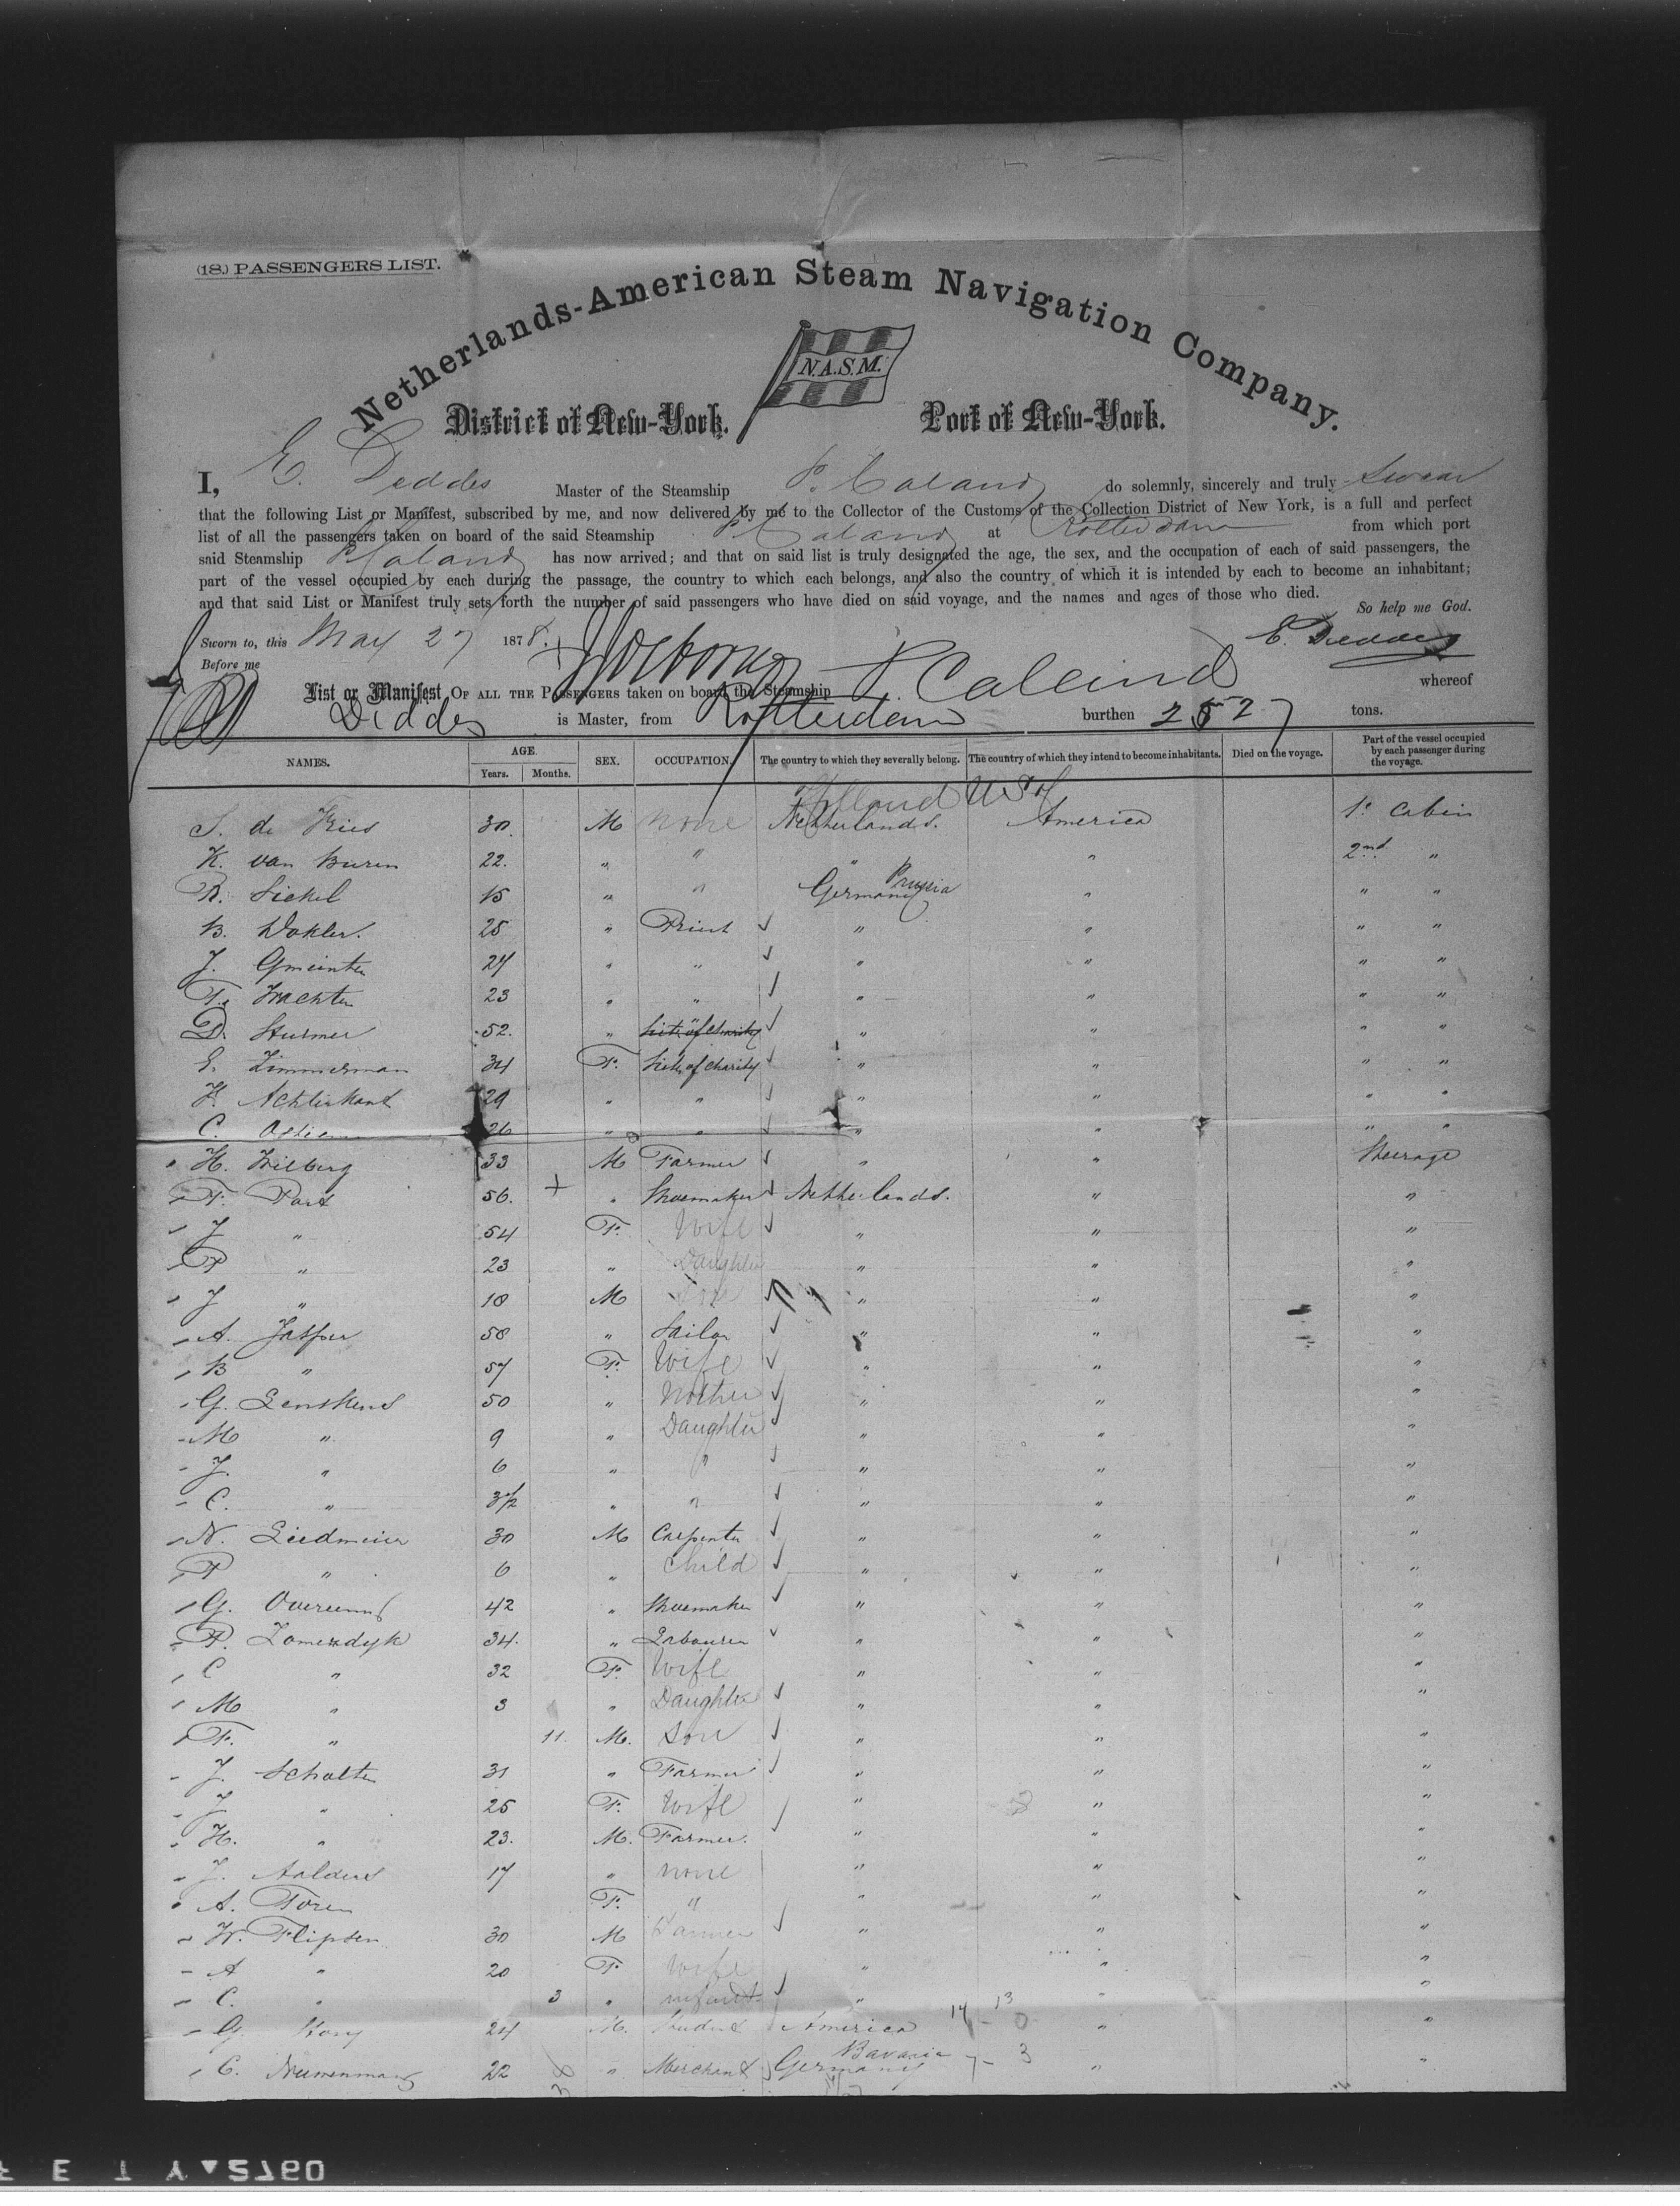 (18.) PASSENGERS LIST.
Netherlands-American Steam Navigation Company.
N.A.S.M.
District of New-York. Port of New-York.
I, E. Deddes Master of the Steamship P. Caland do solemnly, sincerely and truly swear
that the following List or Manifest, subscribed by me, and now delivered by me to the Collector of the Customs of the Collection District of New York, is a full and perfect
list of all the passengers taken on board of the said Steamship P Caland at Rotterdam from which port
said Steamship P Caland has now arrived; and that on said list is truly designated the age, the sex, and the occupation of each of said passengers, the
part of the vessel occupied by each during the passage, the country to which each belongs, and also the country of which it is intended by each to become an inhabitant;
and that said List or Manifest truly sets forth the number of said passengers who have died on said voyage, and the names and ages of those who died.
So help me God.
Sworn to, this May 27 1878. E. Deddes
Before me
List or Manifest OF ALL THE PASSENGERS taken on board the Steamship P. Caland whereof
Deddes is Master, from Rotterdam burthen tons.
NAMES. AGE. Years. Months. SEX. OCCUPATION. The country to which they severally belong. The country of which they intend to become inhabitants. Died on the voyage. Part of the vessel occupied by each passenger during the voyage.
Holland U S of
S. de Vries 30. M None Netherlands. America 1e Cabin
K. van Buren 22. " " " " 2nd "
R. Sickel 15 " " Germany Prussia " " "
B. 25 " Priest " " " "
J. Gmeinter 24 " " " " " "
F. Wachter 23 " " " " " "
D. Sturmer 52. " " " " "
E. Zimmerman 34 F. Sist. of Charity " " " "
H. Achterkant 29 " " " " " "
C. 26 " " " " " "
H. Wilberg 33 M Farmer " " Steerage
F. Part 56. + " Shoemaker Netherlands. " "
J " 54 F. Wife " " "
P " 23 " Daughter " " "
J " 18 M Son " " "
A. Jasper 58 " Sailor " " "
B " 57 F. Wife " " "
G. Lenskens 50 " Mother " " "
M " 9 " Daughter " " "
J. " 6 " " " " "
C. " 3½ " " " " "
N. Liedmeier 30 M Carpenter " " "
P " 6 " Child " " "
G. 42 " Shoemaker " " "
P. Zomerdyk 34. " Labourer " " "
C " 32 F. Wife " " "
M " 3 " Daughter " " "
F. " 11. M. Son " " "
J. Scholten 31 " Farmer " " "
J. " 25 F. Wife " " "
H. " 23. M. Farmer. " " "
J. Aalders 17 " none " " "
A. Toren F. " " " "
W. Flipsen 30 M Farmer " " "
A " 20 F. Wife " " "
C. " 3 " infant " " "
G. 24 M. Student America 14 - 13 0 " "
C. 22 " Merchant Germany Bavaria 7 - 3 " "